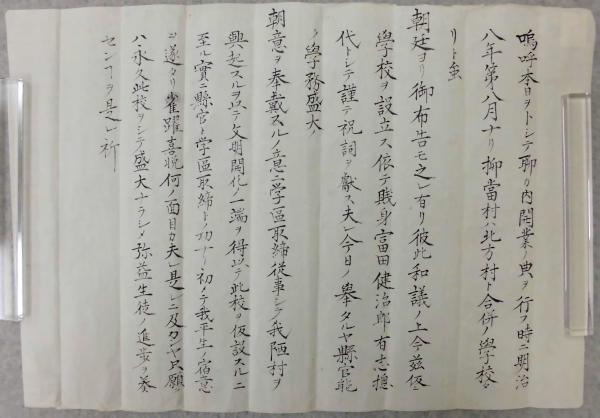 嗚呼本日ヲトシテ聊カ内開業ノ典ヲ行フ時ニ明治
八年第八月ナリ抑當村ハ北方村ト合併ノ學校ナ
リト虽
朝廷ヨリ御布告モ之レ有リ彼此和議ノ上今茲仮ニ
學校ヲ設立ス依テ賎身富田健治郎有志惣
代トシテ謹テ祝詞ヲ獻ス夫レ今日ノ舉タルヤ縣官能
ク學務盛大
朝意ヲ奉戴スルノ意ニ学區取締従事シテ我陋村ヲ
興起スルヲ以テ文明開化ノ一端ヲ得以テ此校ヲ仮設スルニ
至ル實ニ縣官ト学區取締トノ功ナリ初メテ我平生ノ宿意
ヲ遂タリ雀躍喜悦何ノ面目カ夫レ是レニ及カンヤ只願
ハ永久此校ヲシテ盛大ナラシメ弥益生徒ノ進歩ヲ奏
センヿヲ是レ祈